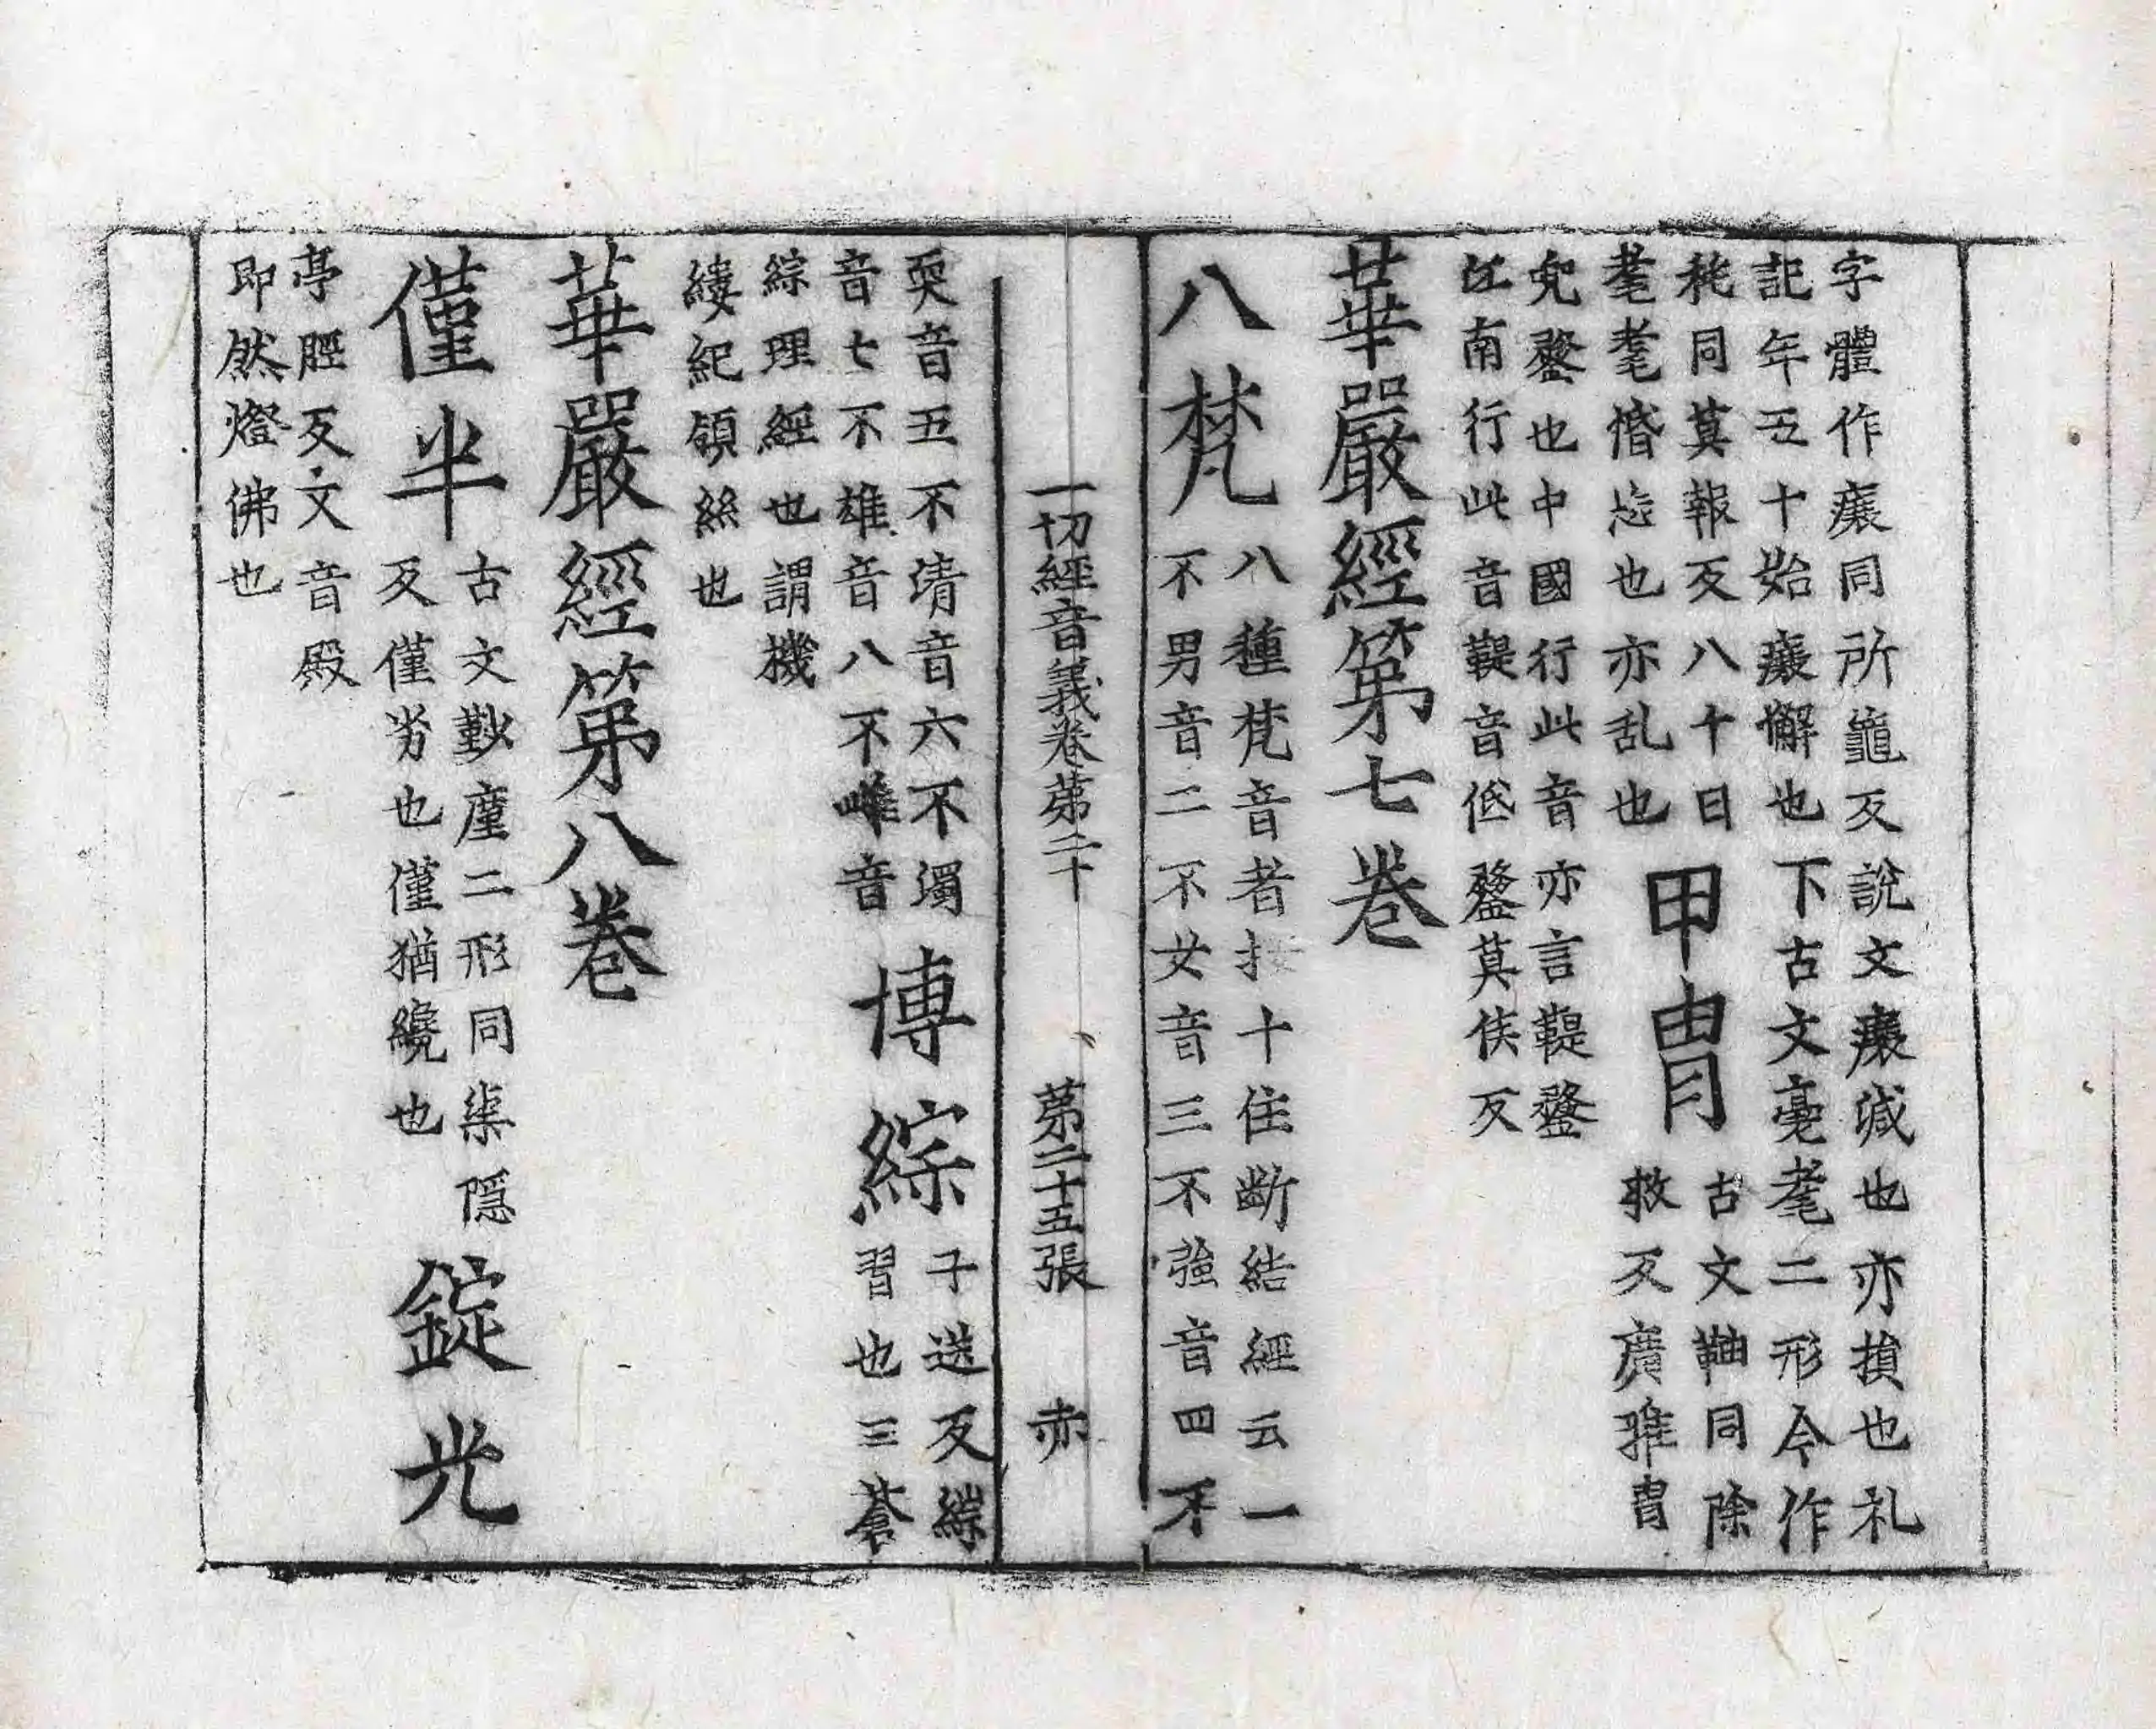 字體作𤸬同所龜反說文𤸬減也亦損也礼
記年五十始𤸬懈也下古文耄二形今作
秏同莫報反八十日
耄耄惛忘也亦乱也
甲冑
古文䩜同除
救反廣雅冑
兜鍪也中國行此音亦言鞮鍪
江南行此音鞮音低鍪莫侯反
華嚴經第七卷
八梵
八種梵音者按十住斷結經云一
不男音二不女音三不強音四不
一切經音義卷第二十 第二十五張 赤
耎音五不清音六不濁
音七不雄音八不雌音
博綜
子送反綜
習也三蒼
綜理經也謂機
縷紀領絲也
華嚴經第八卷
僅半
古文廑二形同渠隱
反僅劣也僅猶纔也
錠光
亭脛反文音殿
即然燈佛也